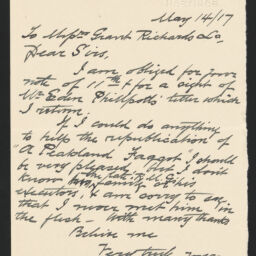 May 14/17
To Messrs Grant Richards & Co.
Dear Sirs,
I am obliged for your
note of 11th & for a sight of
Mr Eden Phillpotts' letter which
I return.
If I could do anything
to help the republication of
"A Peakland Faggot" I should
be very pleased, but I don't
know the late R.M.G.'s
family or his
executors & am sorry to say
that I never met him in
the flesh - With many thanks
Believe me
Very truly yours